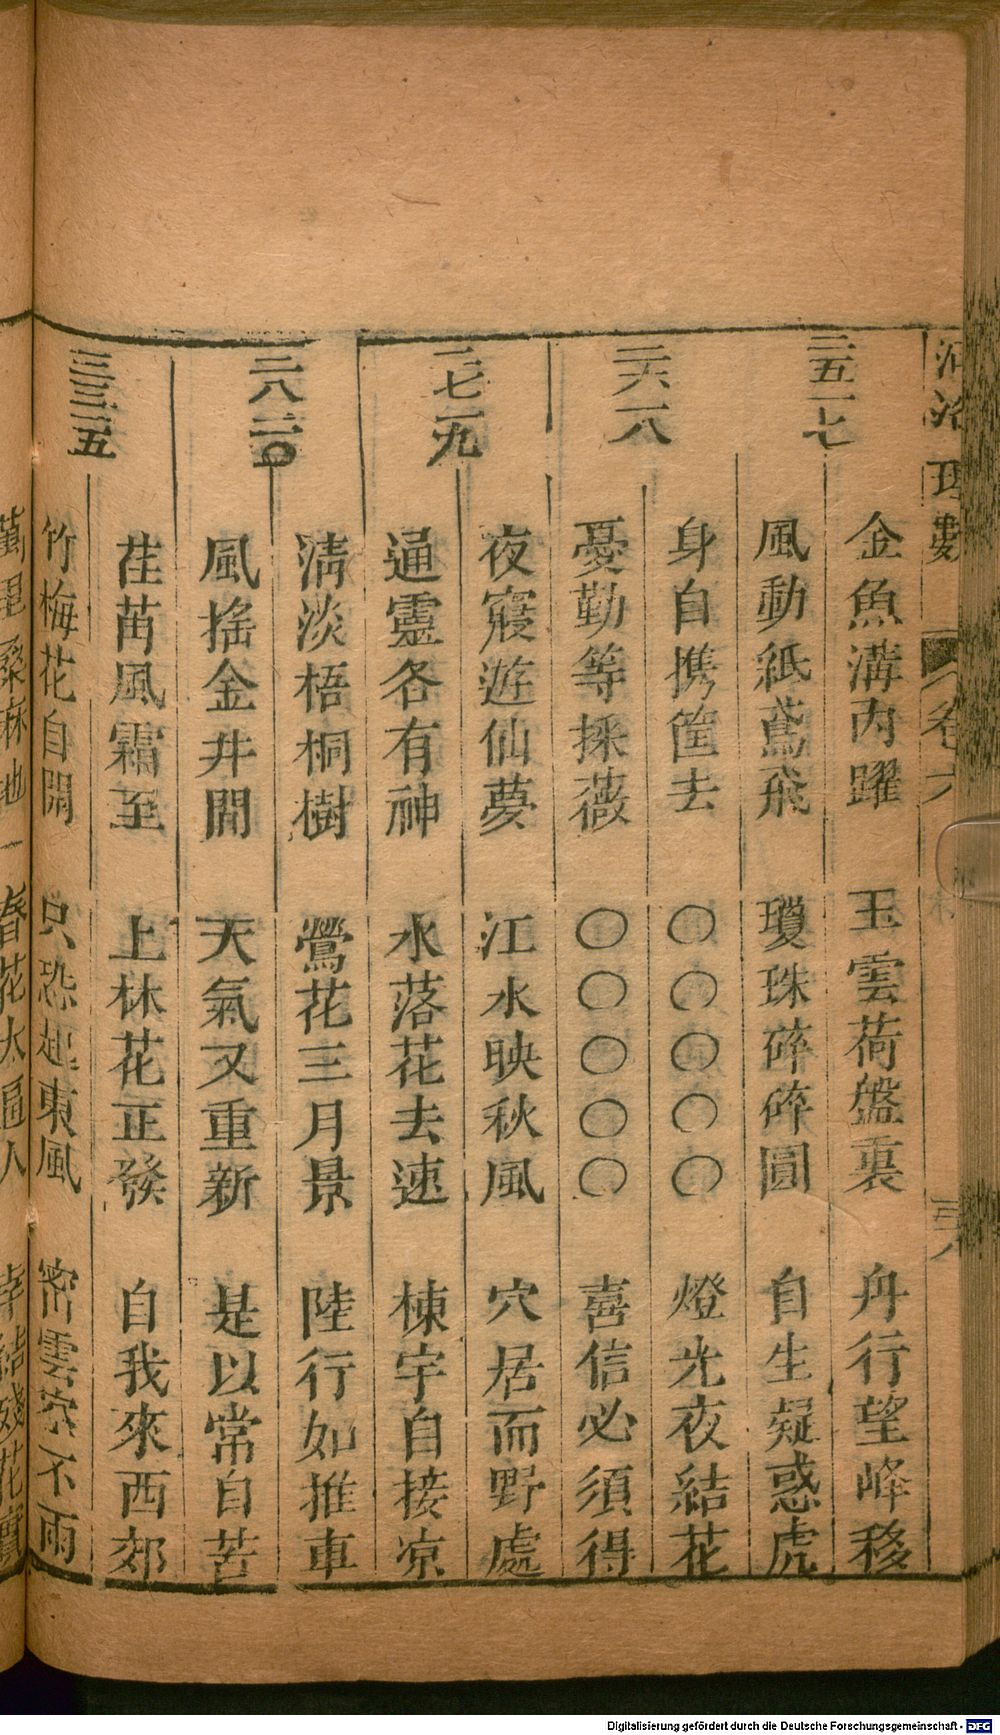 河洛理數 卷六 三八
二五一七
金魚溝内躍 玉雲荷盤裏 舟行望峰移
風動紙鳶飛 瓊珠碎碎圓 自生疑惑虎
二六一八
身自携筐去 〇〇〇〇〇 燈光夜結花
憂勤等採薇 〇〇〇〇〇 喜信必須得
二七一九
夜寢遊仙夢 江水映秋風 穴居而野處
通靈各有神 水落花去速 棟宇自接凉
二八二〇
清淡梧桐樹 鶯花三月景 陸行如推車
風搖金井間 天氣又重新 是以常自苦
荏苒風霜至 上林花正發 自我來西郊
竹梅花自開 只恐起東風 密雲空不雨
春花 人 結殘花實
Digitalisierung gefördert durch die Deutsche Forschungsgemeinschaft - DFG